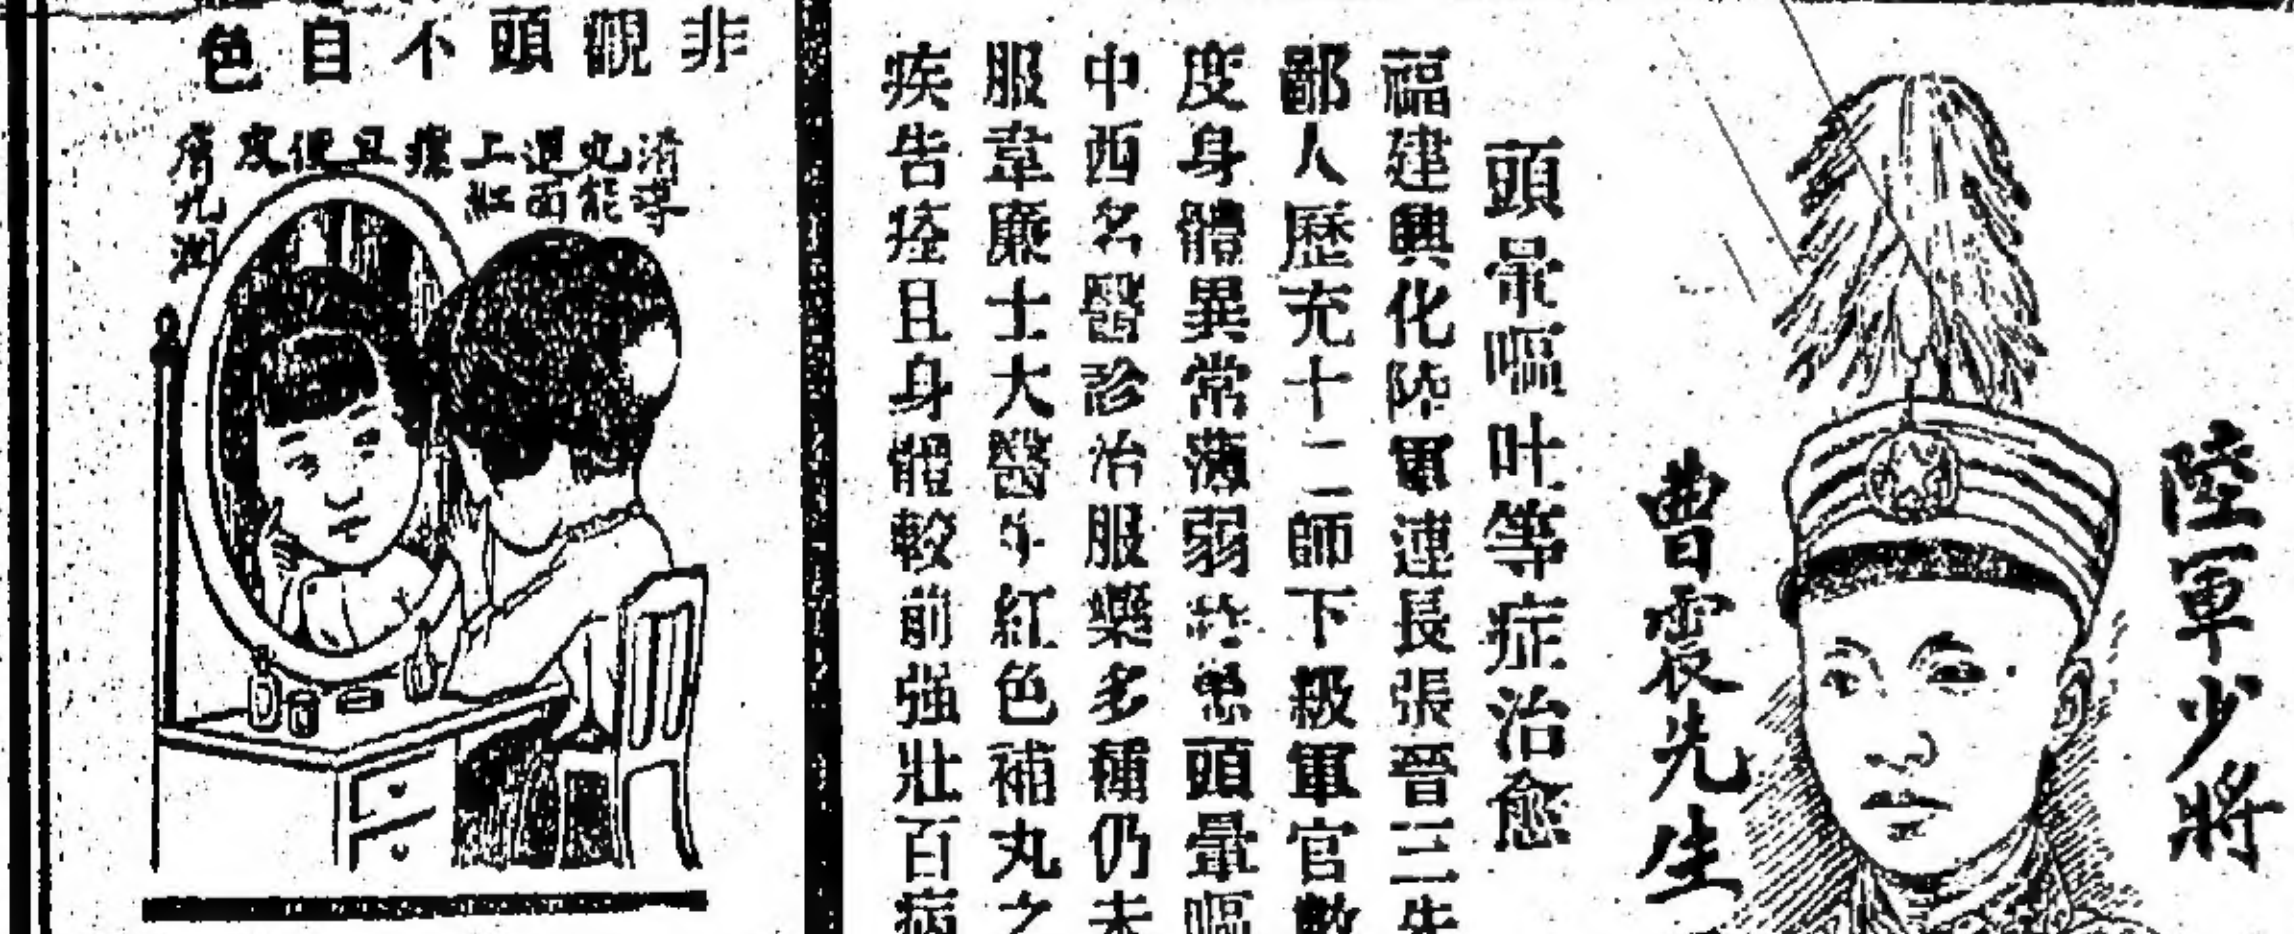 陸軍少將
曹震先生
頭暈嘔吐等症治愈
福建興化陸軍連長張晉三先
鄙人歷充十二師下級軍官數
度身體異常薄弱 頭暈嘔
中西名醫診治服藥多種仍未
服韋廉士大醫生紅色補丸之
疾告痊且身體較前强壯百病
非觀頭不自色
清導
丸能
還面
上紅
樣且使皮
膚光潤